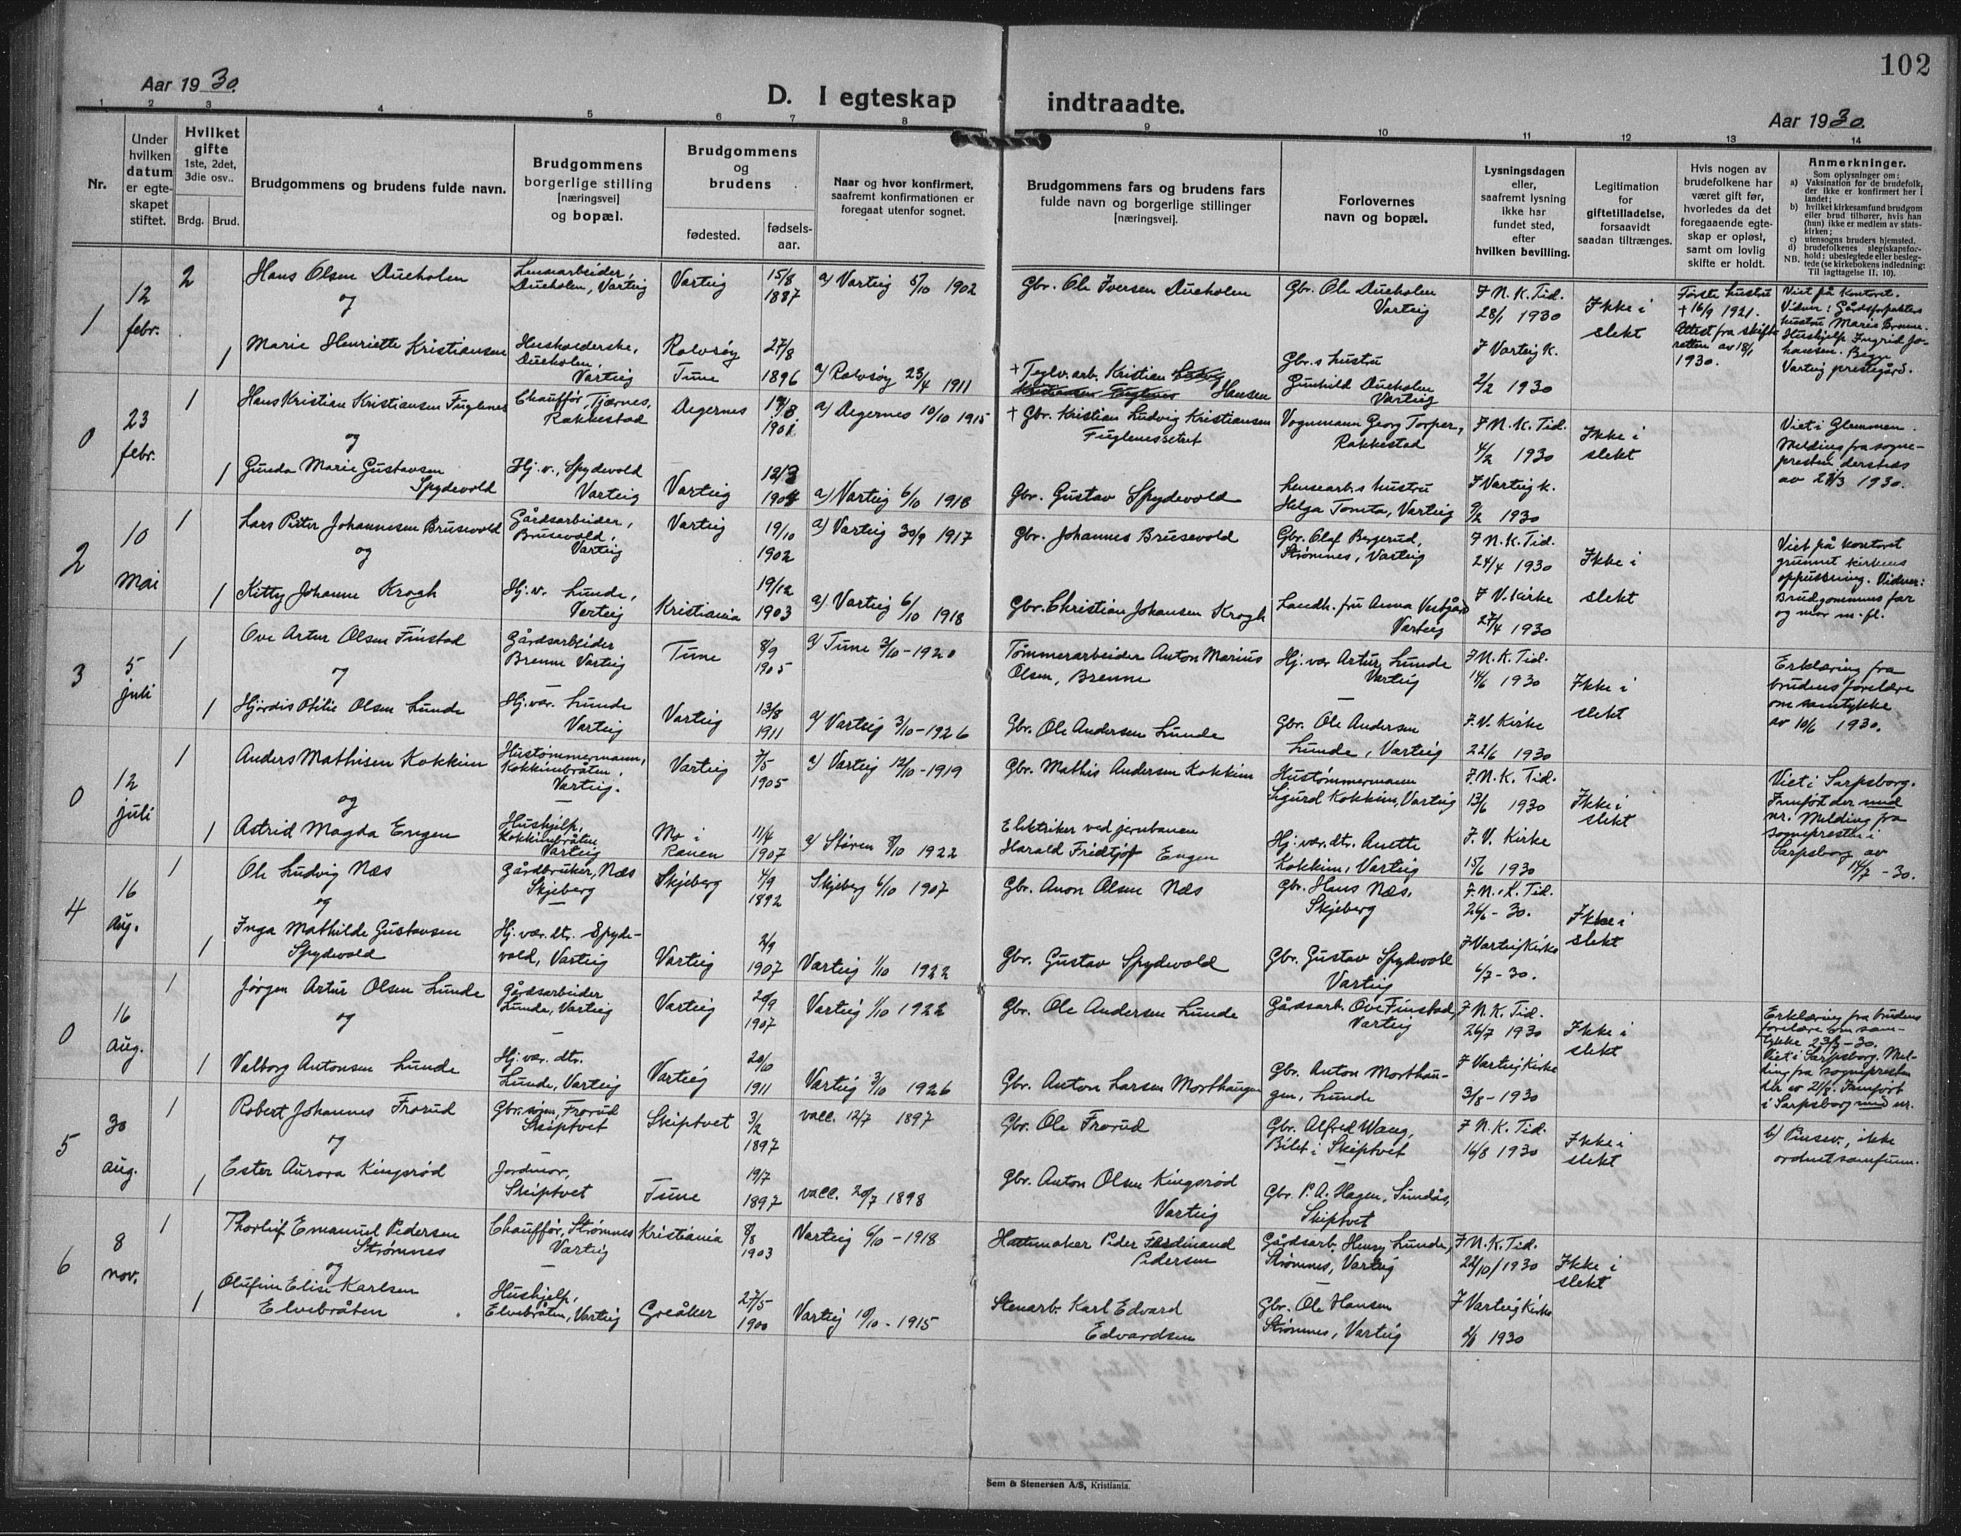 102
Aar 1930.
D. I egteskap indtraadte.
Aar 1930.
1 2 3 4 5 6 7 8 9 10 11 12 13 14
Nr.
Under hvilken datum er egteskapet stiftet.
Hvilket gifte 1ste, 2det, 3die osv..
Brdg. Brud.
Brudgommens og brudens fulde navn.
Brudgommens borgerlige stilling [næringsvei] og bopæl.
Brudgommens og brudens
fødested. fødsels-aar.
Naar og hvor konfirmert, saafremt konfirmationen er foregaat utenfor sognet.
Brudgommens fars og brudens fars fulde navn og borgerlige stillinger [næringsvei].
Forlovernes navn og bopæl.
Lysningsdagen eller, saafremt lysning ikke har fundet sted, efter hvilken bevilling.
Legitimation for giftetilladelse, forsaavidt saadan tiltrænges.
Hvis nogen av brudefolkene har været gift før, hvorledes da det foregaaende egteskap er opløst, samt om lovlig skifte er holdt.
Anmerkninger.
Som oplysninger om:
a) Vaksination for de brudefolk, der ikke er konfirmert her i landet;
b) hvilket kirkesamfund brudgom eller brud tilhører, hvis han (hun) ikke er medlem av statskirken;
c) utensogns bruders hjemsted.
d) brudefolkenes slegtskapsforhold: ubeslegtede eller beslegtede (se kirkebokens indledning: NB. Til iagttagelse II, 10).
1 12 febr. 2 Hans Olsen Dueholen Lensearbeider, Dueholen, Varteig Varteig 15/8 1887 a) Varteig 5/10 1902 Gbr. Ole Iversen Dueholen Gbr. Ole Dueholen Varteig I N. K. Tid. 28/1 1930 Ikke i slekt Første hustru + 16/9 1921. Attest fra skifteretten av 18/1 1930. Viet på kontoret. Vidner: Gårdsforpakters hustru Marie Brenne. Hushjelp Ingrid Johansen. Begge Varteig prestegård.
og
1 Marie Henriette Kristiansen Husholderske, Dueholen, Varteig Rolvsøy Tune 27/8 1896 a) Rolvsøy 23/4 1911 + Teglv.arb. Kristian Hansen Gbr.s hustru Gunhild Dueholen Varteig I Varteig K. 2/2 1930
0 23 febr. 1 Hans Kristian Kristiansen Fuglenes Chauffør, Tjærnes, Rakkestad Degernes 1901 a) Degernes 10/10 1915 + Gbr. Kristian Ludvig Kristiansen Fuglenesseter Vognmann Georg Torper, Rakkestad I N. K. Tid. 4/2 1930 Ikke i slekt Viet i Glemmen. Melding fra sognepresten dersteds av 1930.
og
1 Gunda Marie Gustavsen Spydevold Hj. v., Spydevold Varteig Varteig 1904 a) Varteig 6/10 1918 Gbr. Gustav Spydevold Lensearb.s hustru Helga Tomta, Varteig I Varteig k. 9/2 1930
2 10 mai 1 Lars Peter Johannesen Brusevold Gårdsarbeider, Brusevold, Varteig Varteig 19/10 1902 a) Varteig 30/9 1917 Gbr. Johannes Brusevold Gbr. Olaf Bergerud, Strømnes, Varteig I N. K. Tid. 24/4 1930 Ikke i slekt Viet på kontoret grunnet kirkens oppussning. Vidner: Brudgommens far og mor m. fl.
og
1 Kitty Johanne Krogh Hj. v. Lunde, Varteig Kristiania 19/12 1903 a) Varteig 6/10 1918 Gbr. Christian Johansen Krogh Landh. fru Anna Vestgård Varteig I V. Kirke 27/4 1930
3 5 juli 1 Ove Artur Olsen Finstad Gårdsarbeider Brenne Varteig Tune 8/9 1905 a) Tune 3/10-1920 Tømmerarbeider Anton Marius Olsen, Brenne Hj. vær Artur Lunde Varteig I N. K. Tid. 14/6 1930 Ikke i slekt Erklæring fra brudens forelære om samtykke av 10/6 1930.
og
1 Hjørdis Otilie Olsen Lunde Hj. vær. Lunde Varteig Varteig 13/8 1911 a) Varteig 3/10-1926 Gbr. Ole Andersen Lunde Gbr. Ole Andersen Lunde, Varteig I. V. Kirke 22/6 1930
0 12 juli 1 Anders Mathisen Kokkim Hustømmermann, Kokkimbråten, Varteig. Varteig 7/5 1905 a) Varteig 12/10-1919 Gbr. Mathis Andersen Kokkim Hustømmermann Sigurd Kokkim, Varteig I. N. K. Tid. 13/6 1930 Ikke i slekt Viet i Sarpsborg. Innført der med nr. Melding fra sognepresten i Sarpsborg av 14/7-30.
og
1 Astrid Magda Engen Hushjelp, Kokkimbråten Varteig Mo i Ranen 11/4 1907 a) Støren 8/10 1922 Elektriker ved jernbanen Harald Fridtjof Engen Hj. vær. dtr. Anette Kokkim, Varteig I. V. Kirke 15/6 1930
4 16 aug. 1 Ole Ludvig Næs Gårdbruker, Næs Skjeberg Skjeberg 4/9 1892 Skjeberg 6/10 1907 Gbr. Anon Olsen Næs Gbr. Hans Næs, Skjeberg I. N. K. Tid. 26/6-30. Ikke i slekt
og
1 Inga Mathilde Gustavsen Spydevold Hj. vær. dtr. Spydevold, Varteig Varteig 2/9 1907 Varteig 1/10 1922 Gbr. Gustav Spydevold Gbr. Gustav Spydevold Varteig I Varteig Kirke 6/7-30.
0 16 aug. 1 Jørgen Artur Olsen Lunde Gårdsarbeider Lunde, Varteig Varteig 20/9 1907 Varteig 1/10 1922 Gbr. Ole Andersen Lunde Gårdsarb. Ove Finstad, Varteig I N. K. Tid. 26/7 1930 Ikke i slekt Erklæring fra brudens forelære om samtykke -30. Viet i Sarpsborg. Melding fra sognepresten der av Innført i Sarpsborg med nr.
og
1 Valborg Antonsen Lunde Hj. vær. dtr. Lunde, Varteig Varteig 20/10 1911 Varteig 3/10 1926 Gbr. Anton Larsen Morthaugen Gbr. Anton Morthaugen, Lunde I Varteig Kirke 3/8-1930
5 30 aug. 1 Robert Johannes Frorud Gbr. sønn, Frorud Skiptvet Skiptvet 3/2 1897 vacc. 12/7 1897 Gbr. Ole Frorud Gbr. Alfred Wang, Bilet i Skiptvet I N. K. Tid. 16/8 1930 Ikke i slekt b) Pinsev., ikke ordnet samfunn.
og
1 Ester Aurora Kingsrød Jordmor, Skiptvet Tune 19/7 1897 vacc. 20/7 1898 Gbr. Anton Olsen Kingsrød Varteig Gbr. P. A. Hagen, Sundås, Skiptvet
6 8 nov. 1 Thorleif Emanuel Pedersen Strømnes Chauffør, Strømnes Varteig Kristiania 8/8 1903 Varteig 6/10-1918 Hattemaker Peder Ferdinand Pedersen Gårdsarb. Henry Lunde, Strømnes, Varteig I N. K. Tid. 22/10/1930 Ikke i slekt
og
1 Olufine Elise Karlsen Elvebråten Hushjelp, Elvebråten, Varteig Greåker 27/5 1900 Varteig 10/10-1915 Stenarb. Karl Edvard Edvardsen Gbr. Ole Hansen Strømnes, Varteig I Varteig Kirke 1930
Sem & Stenersen A/S, Kristiania.